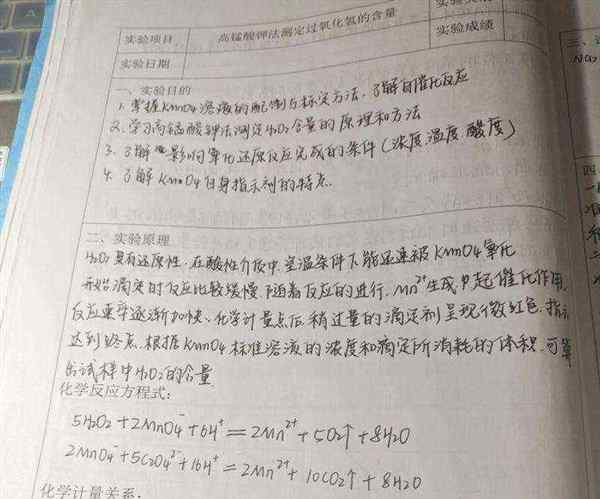 实验项目 高锰酸钾法测定过氧化氢的含量
实验成绩
实验日期
一、实验目的
1. 掌握KMnO4溶液的配制与标定方法,了解自催化反应
2. 学习高锰酸钾法测定H2O2含量的原理和方法
3. 了解影响氧化还原反应完成的条件(浓度、温度、酸度)
4. 了解KMnO4自身指示剂的特点.
二、实验原理
H2O2具有还原性,在酸性介质中,室温条件下能迅速被KMnO4氧化
开始滴定时反应比较缓慢,随着反应的进行,Mn²⁺生成,起催化作用
反应速率逐渐加快、化学计量点后,稍过量的滴定剂呈现微红色,指示
达到终点,根据KMnO4标准溶液的浓度和滴定所消耗的体积,可算
出试样中H2O2的含量
化学反应方程式:
5H2O2+2MnO4⁻+6H⁺=2Mn²⁺+5O2↑+8H2O
2MnO4⁻+5C2O4²⁻+16H⁺=2Mn²⁺+10CO2↑+8H2O
化学计量关系:
三、
Na2
四